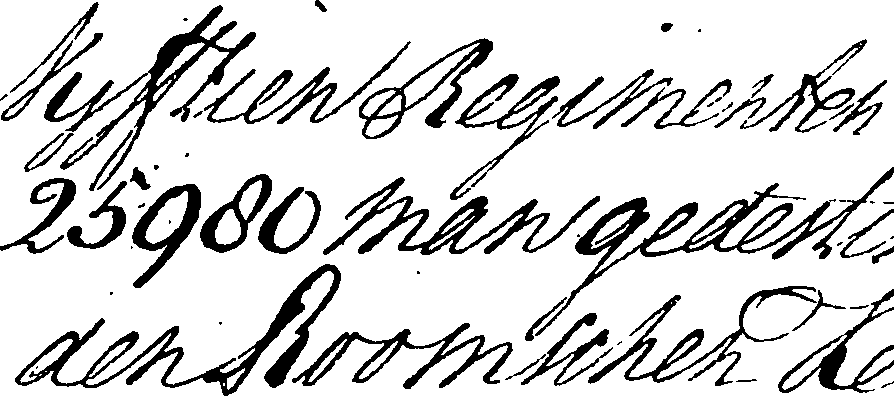 Vyftien Regimenten
25980 man gedesti
den Roomschen Ke